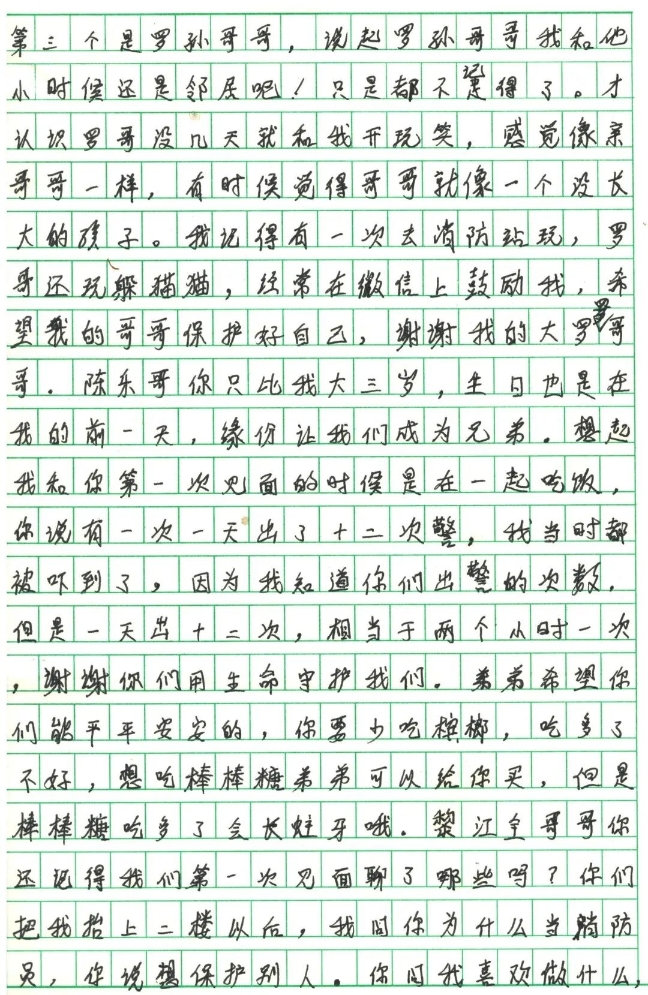 第三个是罗孙哥哥，说起罗孙哥哥我和他
小时候还是邻居呢！只是都不记得了。才
认识罗哥没几天就和我开玩笑，感觉像亲
哥哥一样，有时候觉得哥哥就像一个没长
大的孩子。我记得有一次去消防站玩，罗
哥还玩躲猫猫，经常在微信上鼓励我，希
望我的哥哥保护好自己，谢谢我的大罗哥
哥．陈乐哥你只比我大三岁，生日也是在
我的前一天，缘份让我们成为兄弟．想起
我和你第一次见面的时候是在一起吃饭，
你说有一次一天出了十二次警，我当时都
被吓到了，因为我知道你们出警的次数，
但是一天出十二次，相当于两个小时一次
，谢谢你们用生命守护我们．弟弟希望你
们能平平安安的，你要少吃槟榔，吃多了
不好，想吃棒棒糖弟弟可以给你买，但是
棒棒糖吃多了会长蛀牙哦．黎江全哥哥你
还记得我们第一次见面聊了哪些吗？你们
把我抬上二楼以后，我问你为什么当消防
员，你说想保护别人．你问我喜欢做什么，